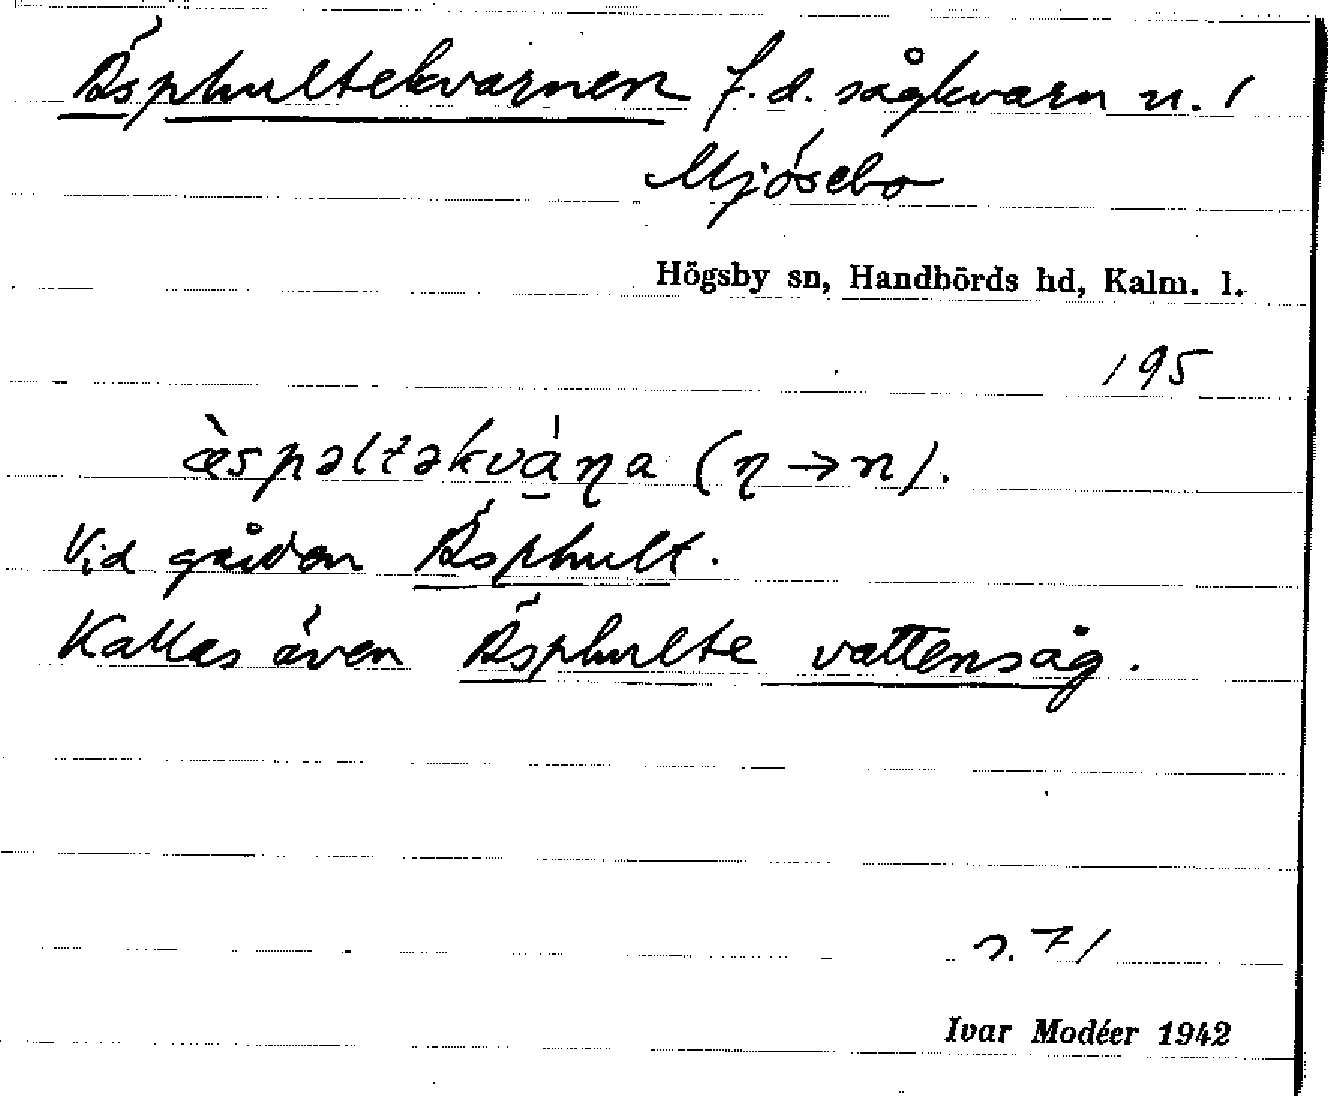 Äsphultekvarnen f.d. sågkvarn u. /
Mjösebo
Högsby sn, Handbörds hd, Kalm. l.
195
æ̀spəltəkvá̱ɳa (ɳ → n).
Vid gården Äsphult.
Kallas även Äsphulte vattensåg.
s. 71
Ivar Modéer 1942